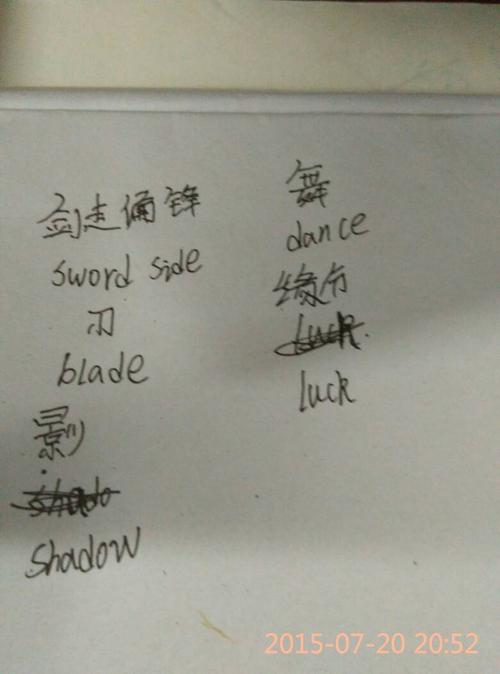 剑走偏锋
sword side
刃
blade
影
shadow
舞
dance
缘分
luck
luck
2015-07-20 20:52